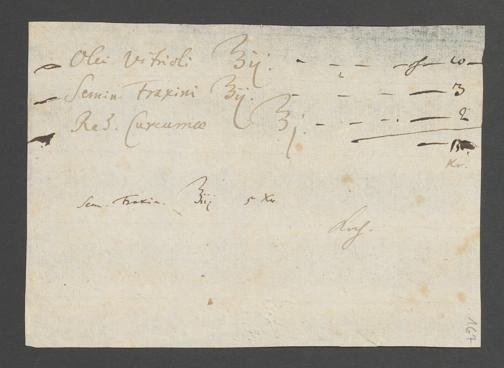 Olei Vitrioli ℥ij. - - - - 10
Semin Fraxini ℥ij. - - - - 3
Rad. Curcumae ℥j. - - - - 2
15
Kr.
Sem. Fraxin. ℥iij 5 Kr
167